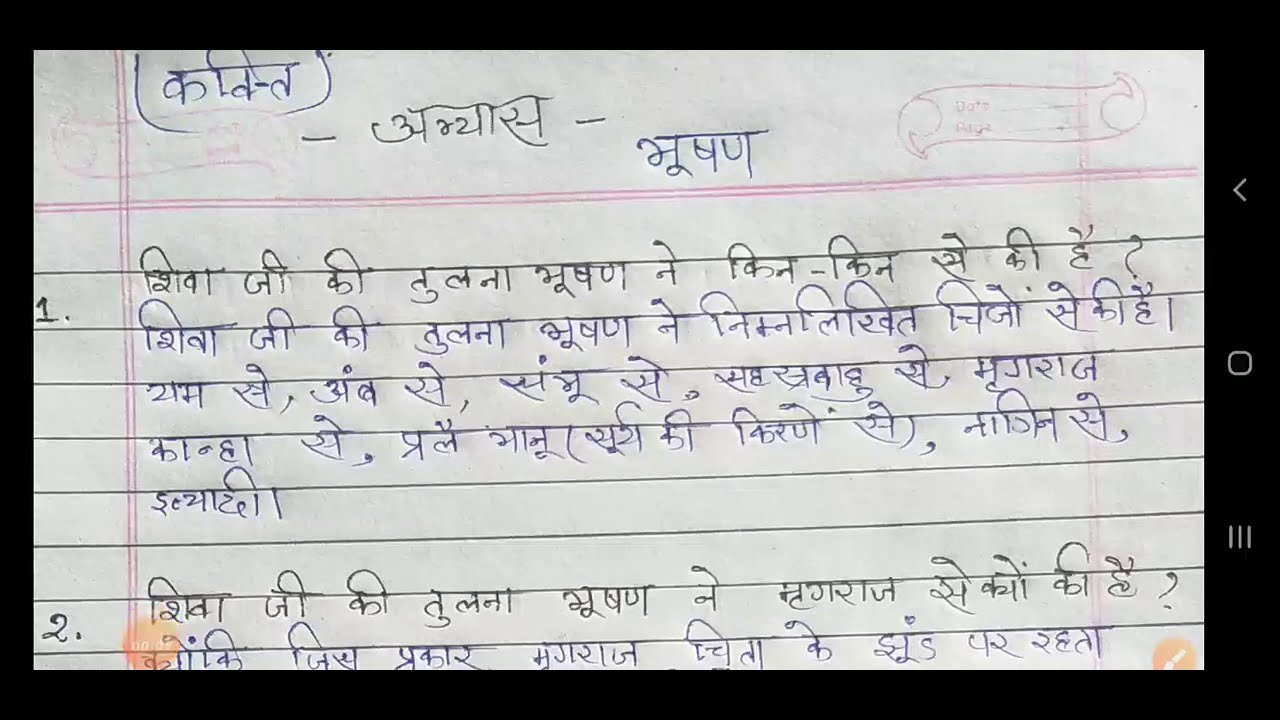 (कवित्त)
- अभ्यास -
भूषण
Date
Page
शिवा जी की तुलना भूषण ने किन-किन से की है ?
1.
शिवा जी की तुलना भूषण ने निम्नलिखित चिजों से की है।
यम से, अंब से, संभू से, सहस्त्रबाहु से, मृगराज
कान्हा से, प्रलै भानू (सूर्य की किरणों से), नागिन से,
इत्यादी।
शिवा जी की तुलना भूषण ने मृगराज से क्यों की है ?
2.
क्योंकि जिस प्रकार मृगराज चिता के झूंड पर रहता